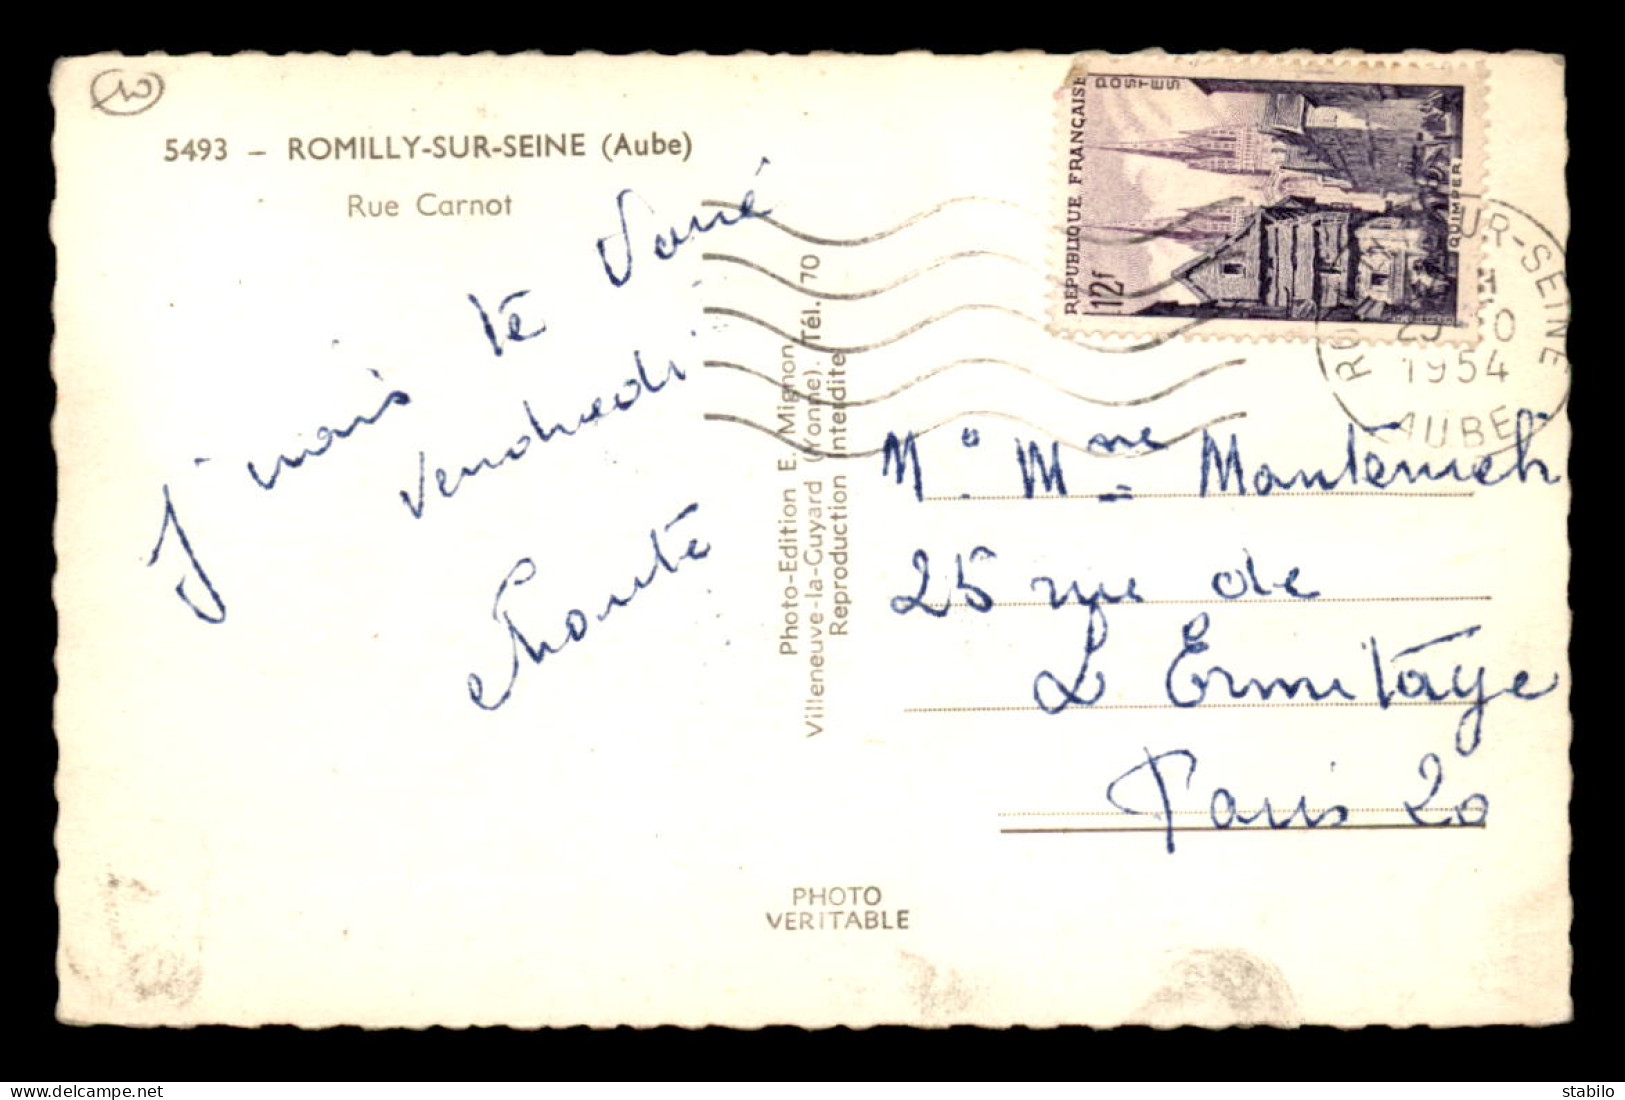 10
5493 – ROMILLY-SUR-SEINE (Aube)
Rue Carnot
J'irais te
vendredi
Photo-Edition E. Mignon
Villeneuve-la-Guyard (Yonne). Tél. 70
Reproduction Interdite
POSTES
REPUBLIQUE FRANÇAISE
12f
QUIMPER
UR-SEINE
1954
AUBE
M. Mme
25 rue de
L Ermitage
Paris 20
PHOTO
VERITABLE
delcampe.net
stabilo